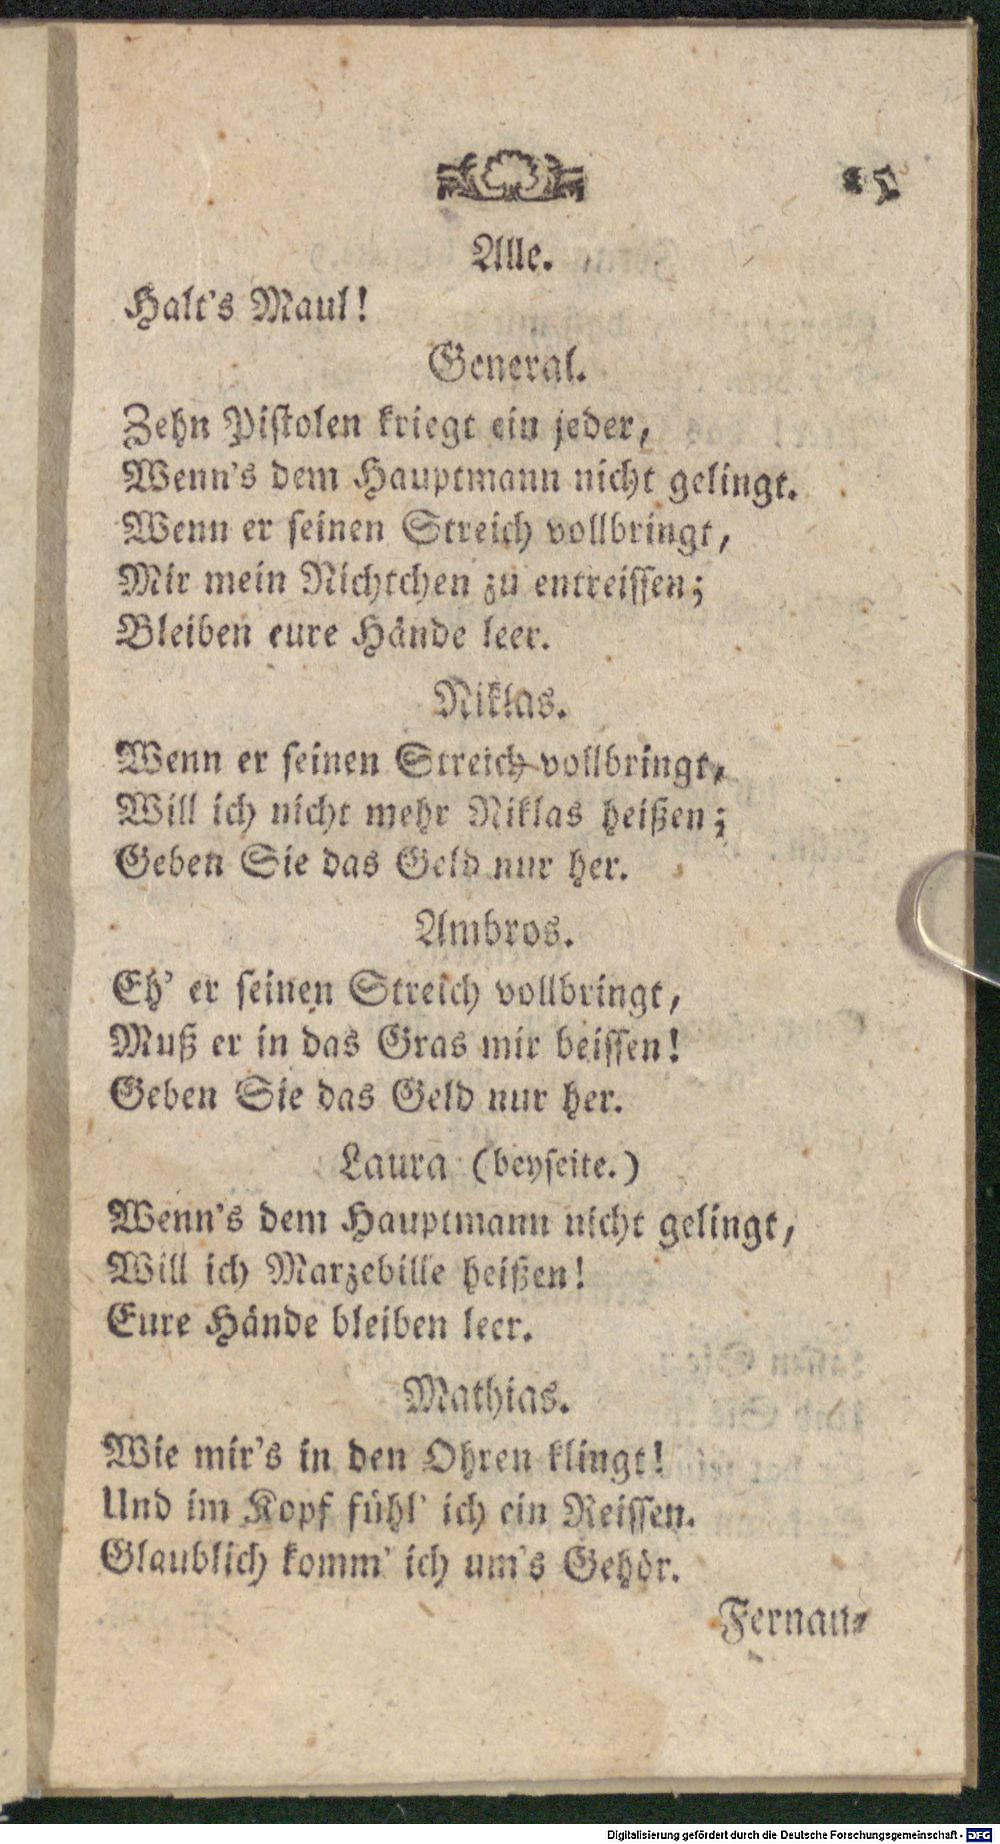 15
Alle.
Halt's Maul!
General.
Zehn Pistolen kriegt ein jeder,
Wenn's dem Hauptmann nicht gelingt.
Wenn er seinen Streich vollbringt,
Mir mein Nichtchen zu entreissen;
Bleiben eure Hände leer.
Niklas.
Wenn er seinen Streich vollbringt,
Will ich nicht mehr Niklas heißen;
Geben Sie das Geld nur her.
Ambros.
Eh' er seinen Streich vollbringt,
Muß er in das Gras mir beissen!
Geben Sie das Geld nur her.
Laura (beyseite.)
Wenn's dem Hauptmann nicht gelingt,
Will ich Marzebille heißen!
Eure Hände bleiben leer.
Mathias.
Wie mir's in den Ohren klingt!
Und im Kopf fühl' ich ein Reissen.
Glaublich komm' ich um's Gehör.
Fernan-
Digitalisierung gefördert durch die Deutsche Forschungsgemeinschaft - DFG